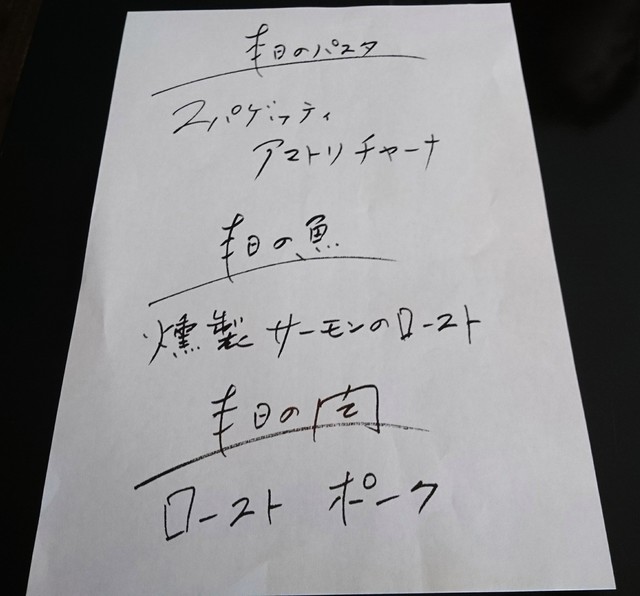 本日のパスタ
スパゲッティ
アマトリチャーナ
本日の魚
燻製サーモンのロースト
本日の肉
ローストポーク